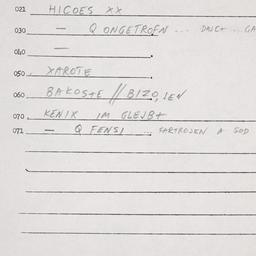 021 HICOES XX
030 — Q ONGETROFN ...
040 —
050 XAROTE
060 BAKOSTE // BIZO, IEN
070 KENIX IM GLEJBT
071 — Q FENSI .. FARTROJEN A GOD